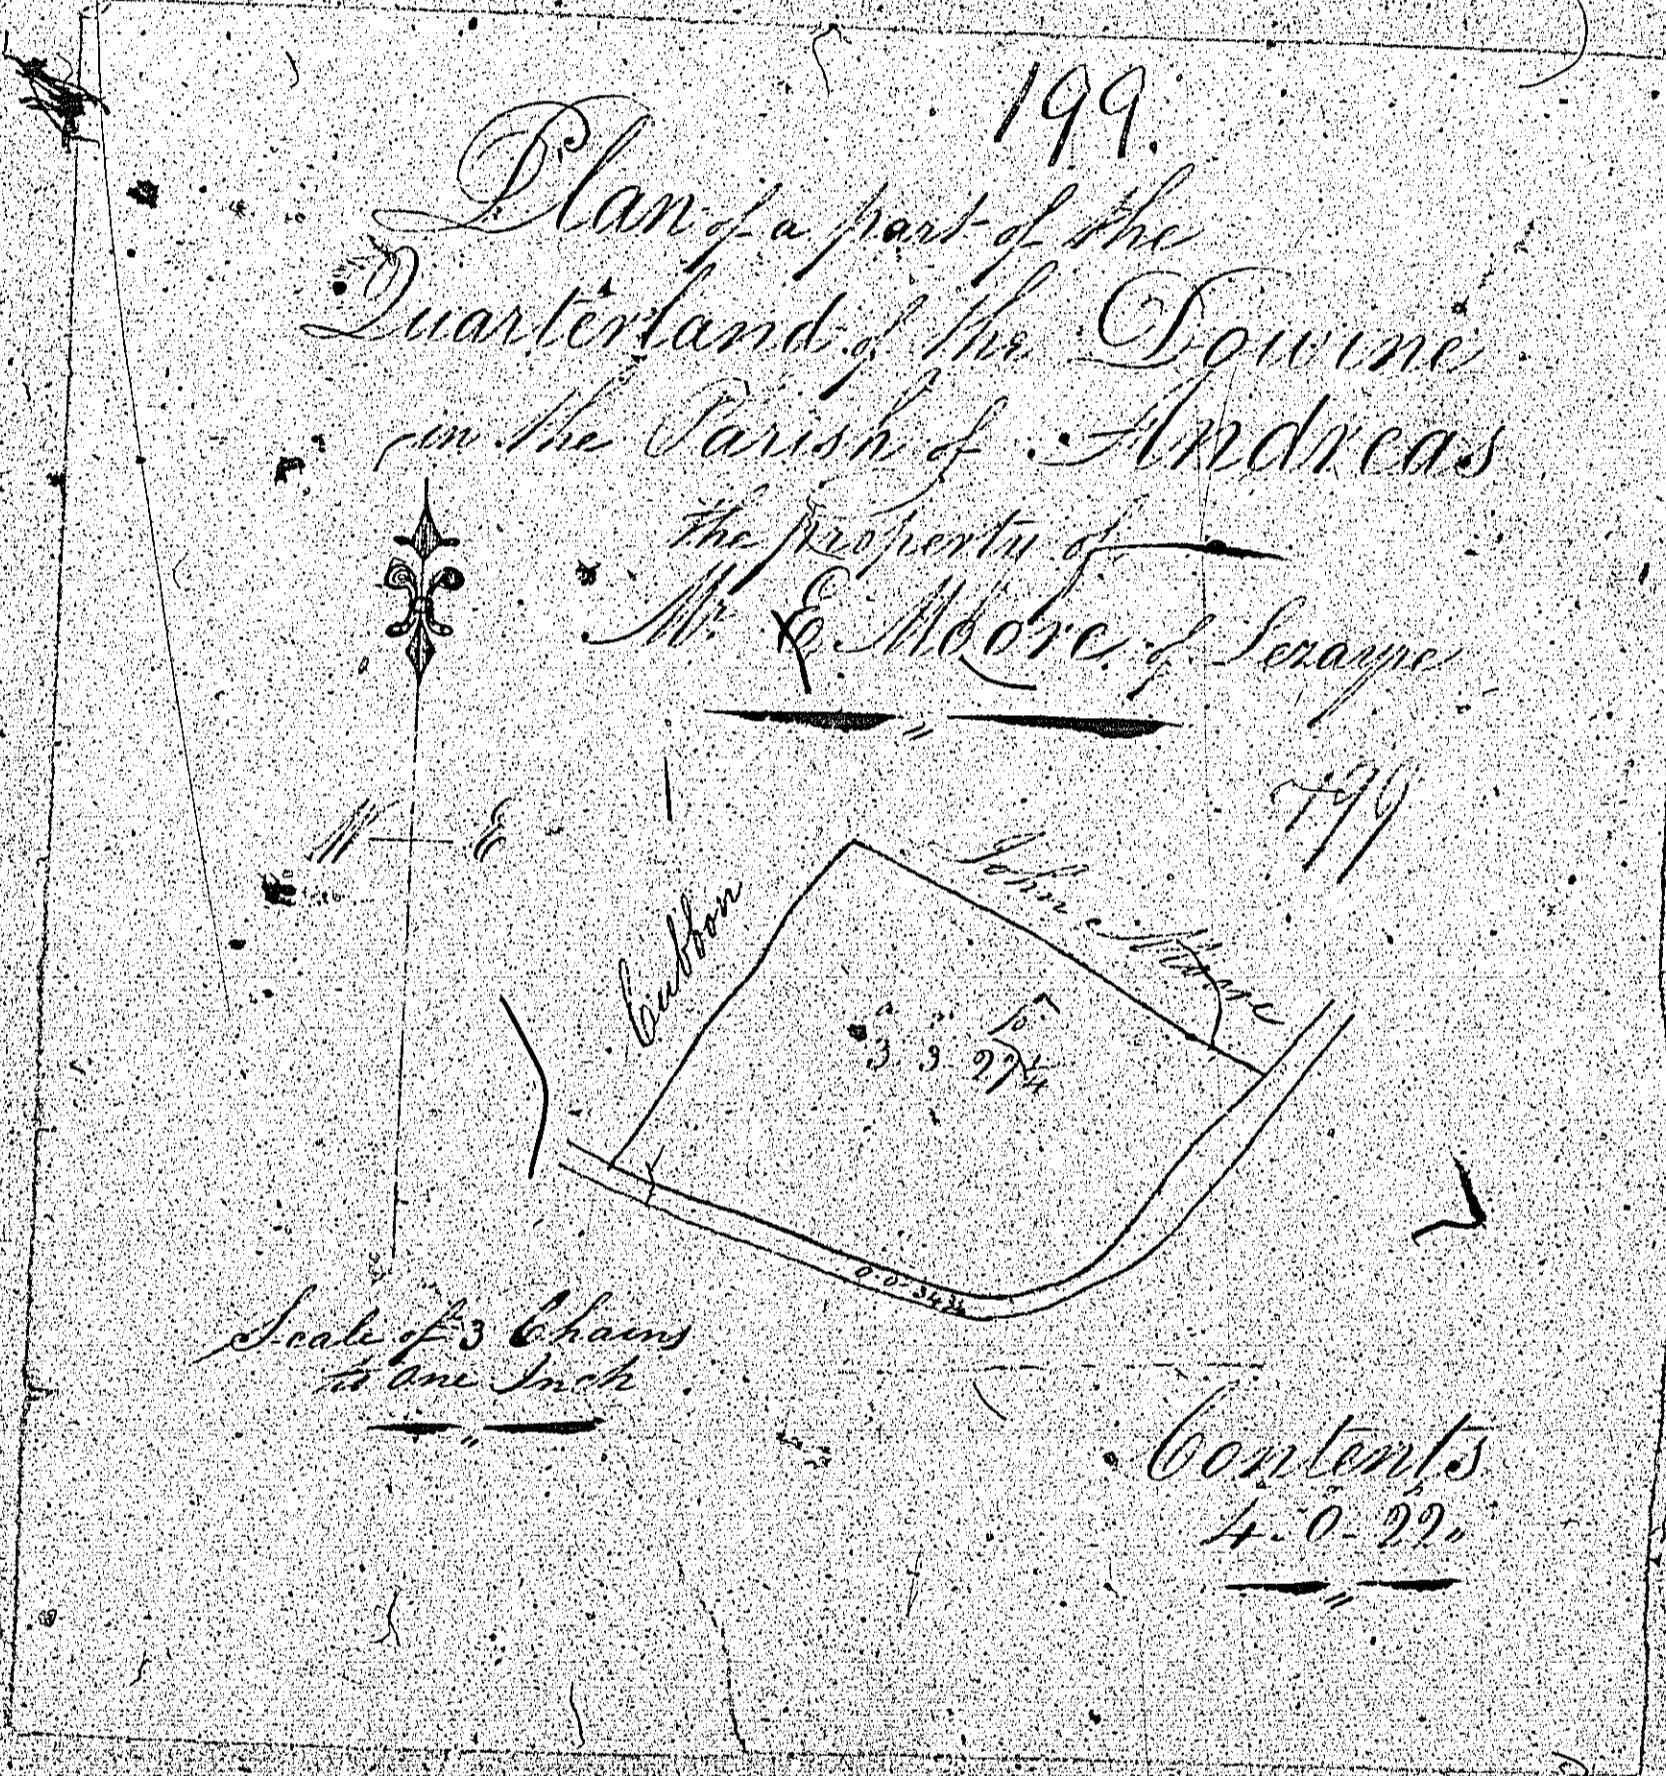 199.
Plan of a part of the
Quarterland of the Dowine
in the Parish of Andreas
the property of
Mr. E. Moore of Lezayre
199
W E
Cubbon
John Moore
a r p
3. 3. 27 1/4
0 - 0 - 34 3/4
Scale of 3 Chains
to One Inch
Contents
a r p
4 - 0 - 22 "